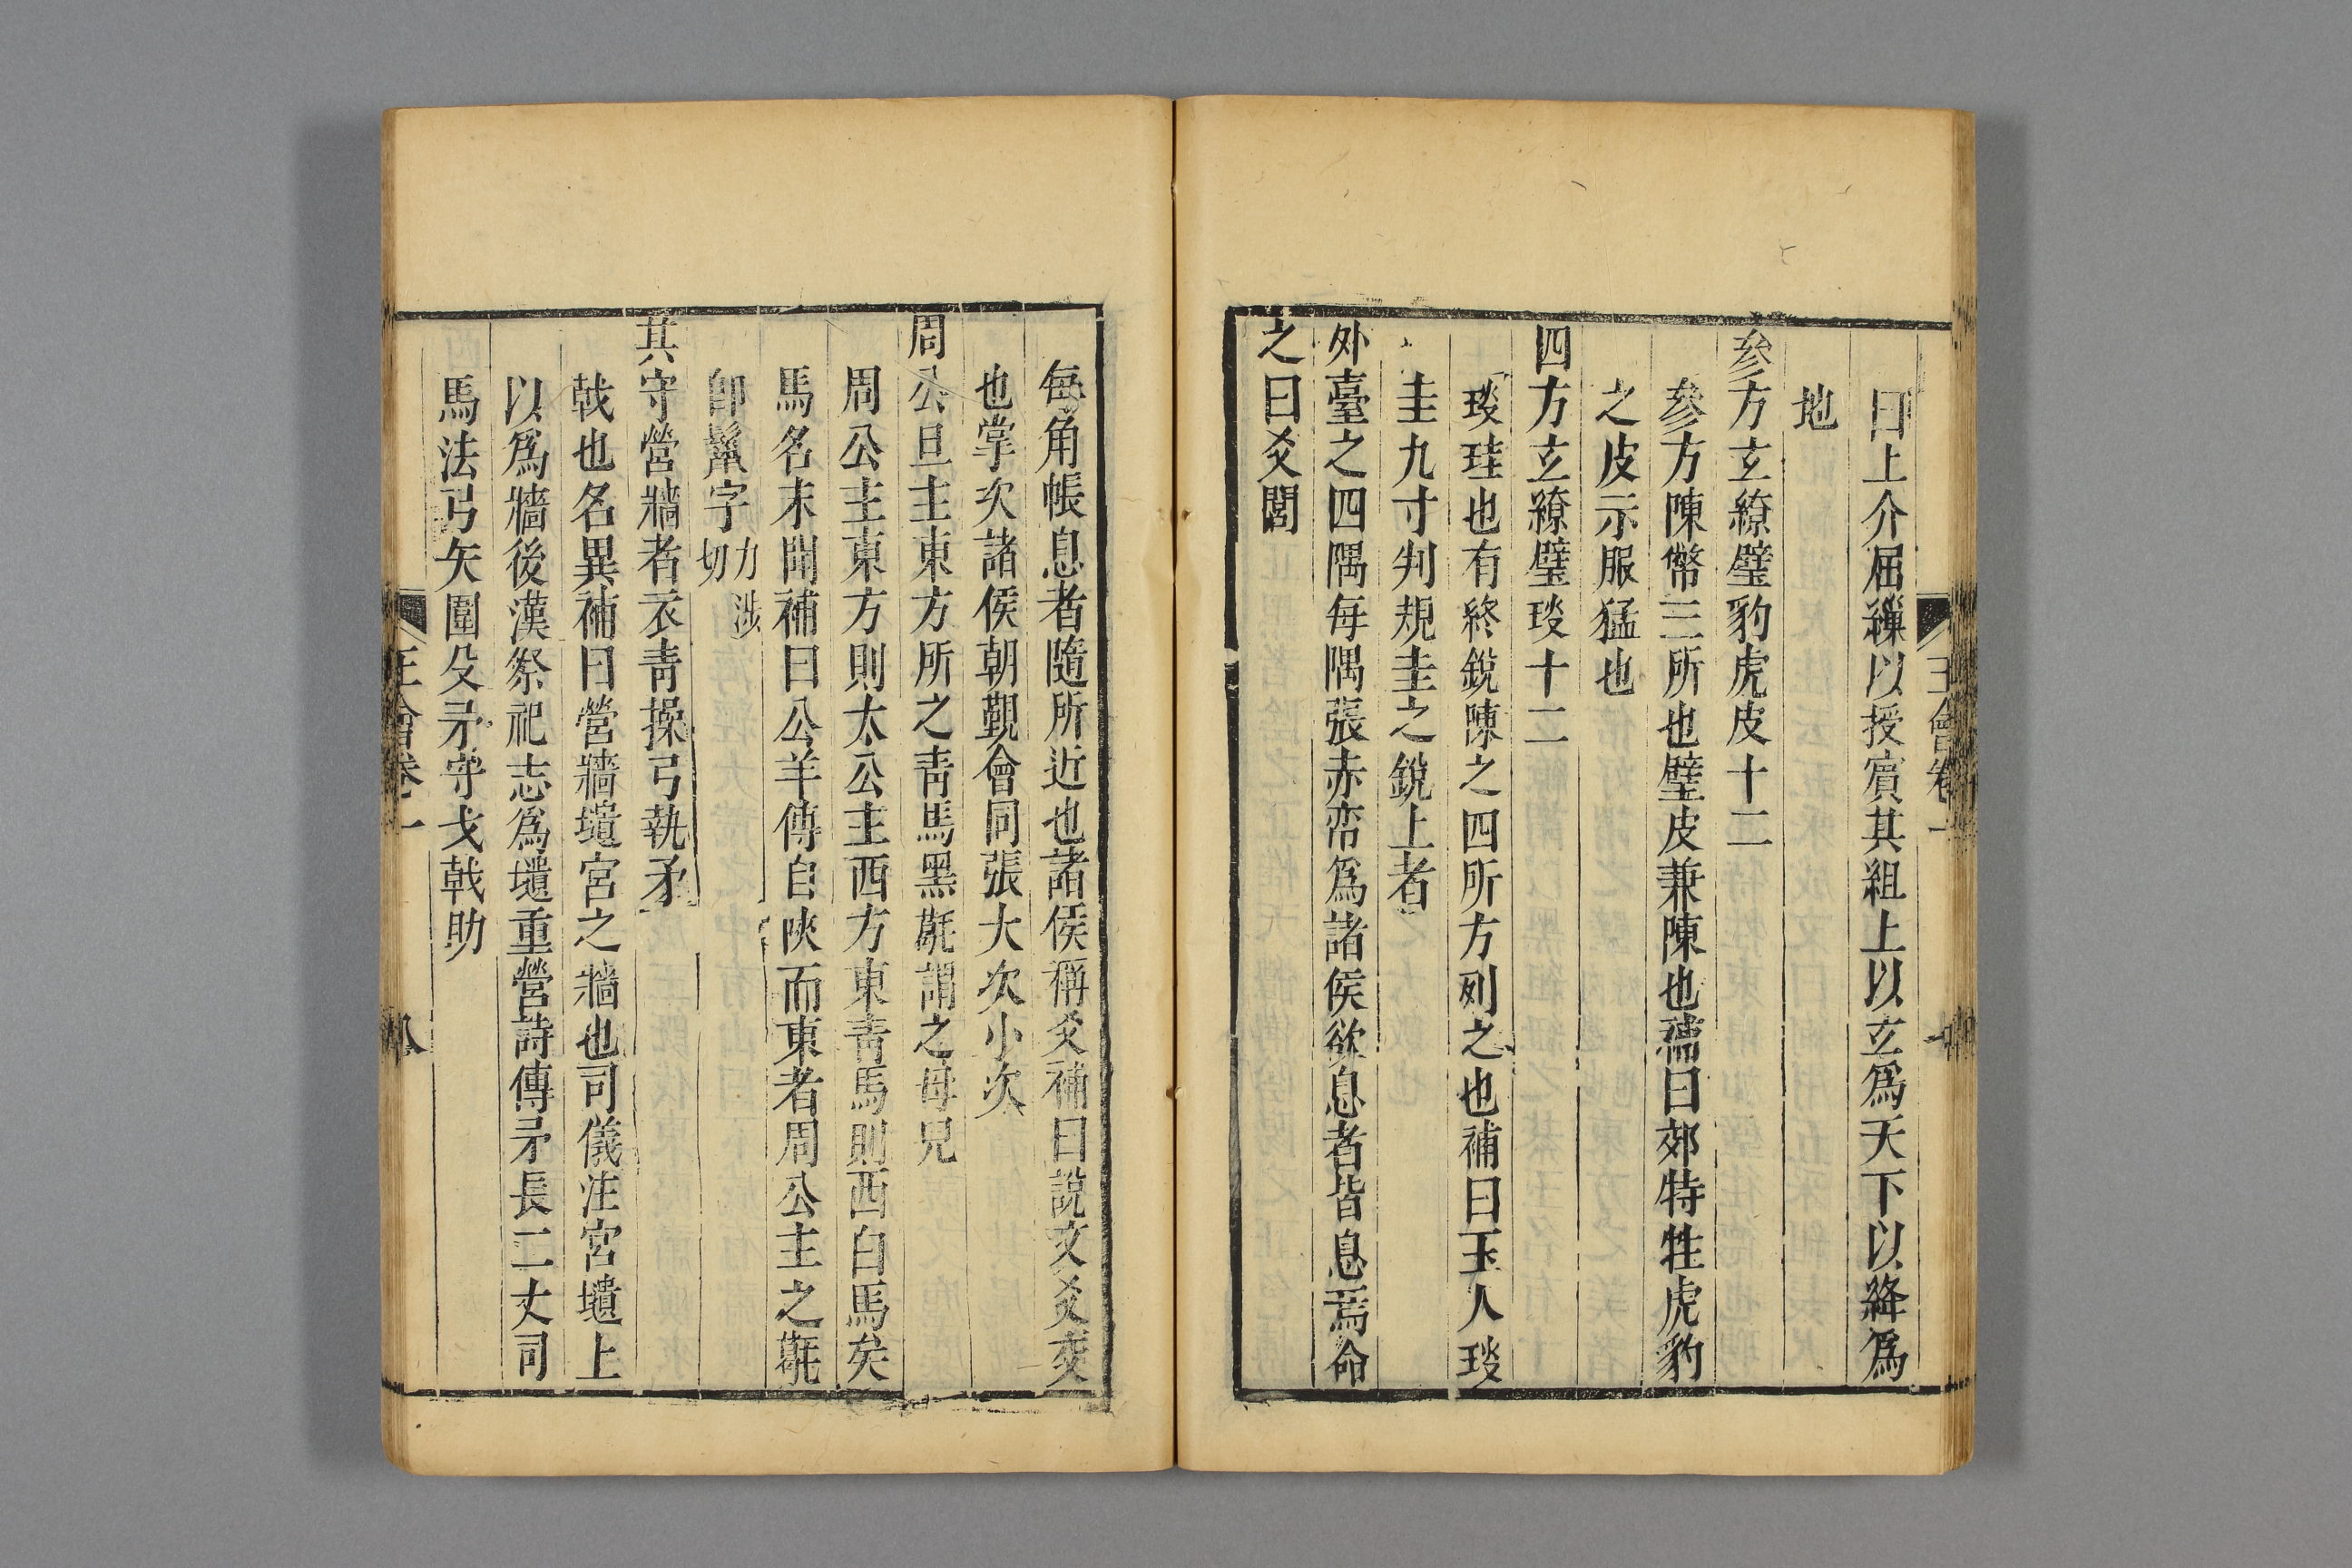 曰上介屈繅以授賓其組上以玄爲天下以絳爲
地
參方玄繚璧豹虎皮十二
參方陳幣三所也璧皮兼陳也補曰郊特牲虎豹
之皮示服猛也
四方玄繚璧琰十二
琰珪也有終銳陳之四所方列之也補曰玉人琰
圭九寸判規圭之銳上者
外臺之四隅每隅張赤帟爲諸侯欲息者皆息焉命
之曰爻閭
每角帳息者隨所近也諸侯稱爻補曰說文爻交
也掌次諸侯朝覲會同張大次小次
周公旦主東方所之靑馬黑𩮜謂之母兒
周公主東方則太公主西方東靑馬則西白馬矣
馬名未聞補曰公羊傳自陜而東者周公主之𩮜
卽鬣字力涉切
其守營牆者衣靑操弓執矛
戟也名異補曰營牆壝宮之牆也司儀注宮壝土
以爲牆後漢祭祀志爲壝重營詩傳矛長二丈司
馬法弓矢圍殳矛守戈戟助
王會卷一
八
王會卷一